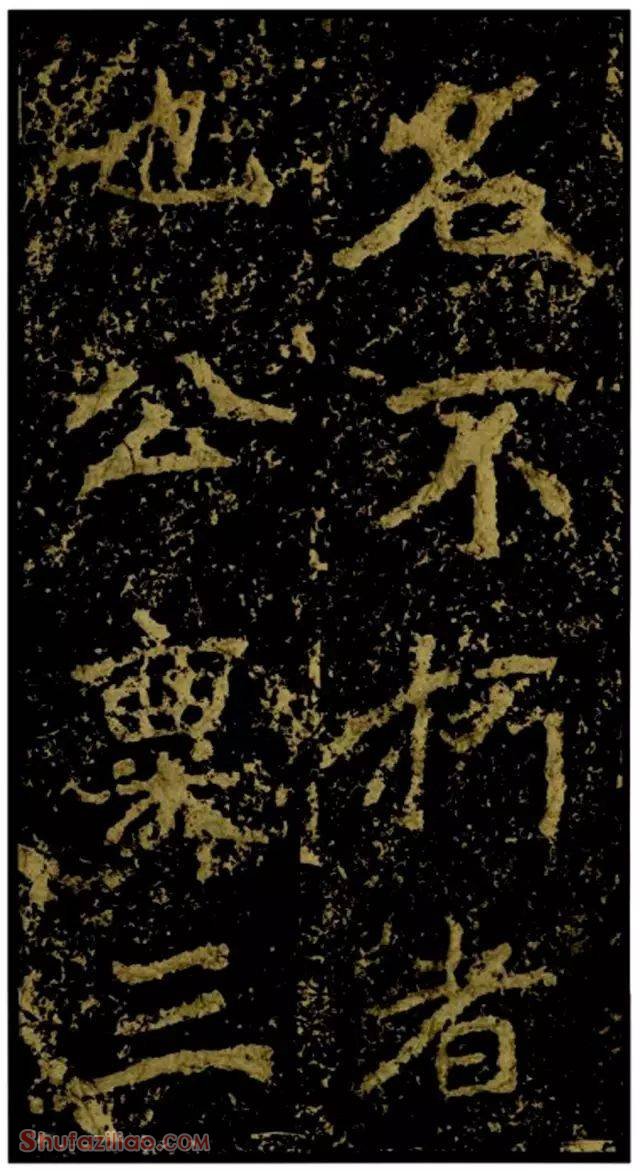 名不朽者
也公稟三
Shufaziliao.COM